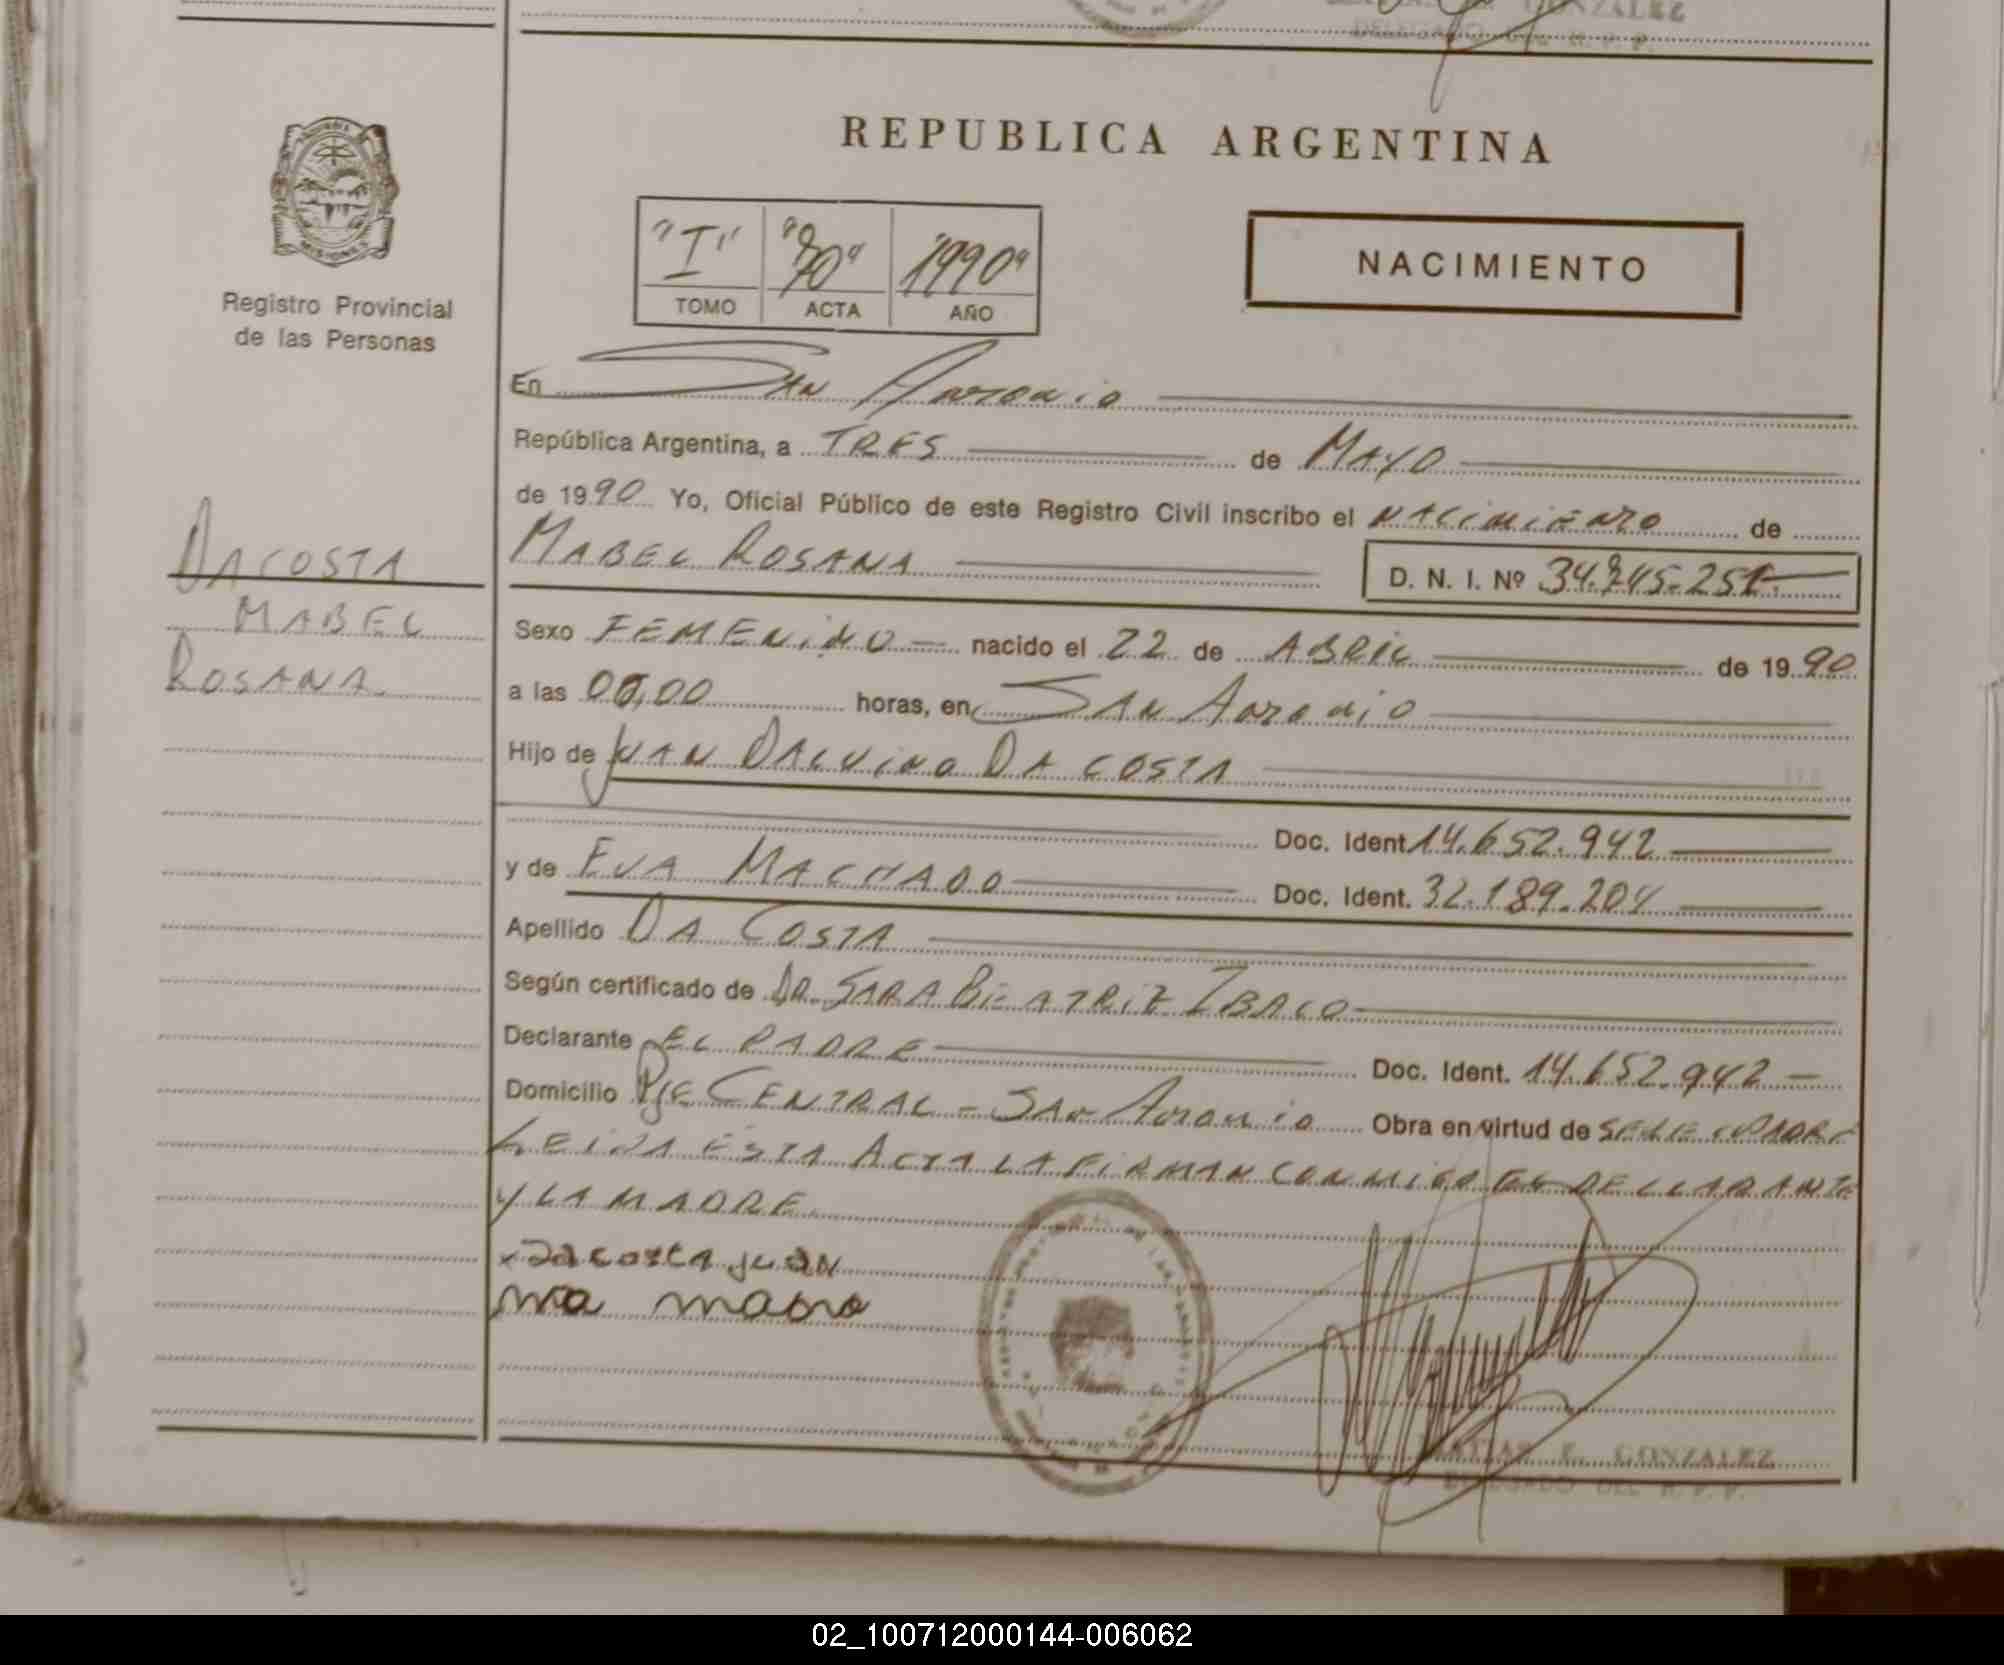 GONZALEZ
DELEGADO DEL R. P. P.
REPUBLICA ARGENTINA
MISIONES
Registro Provincial
de las Personas
"I" "70" "1990"
TOMO ACTA AÑO
NACIMIENTO
En San Antonio
República Argentina, a TRES de MAYO
de 1990 Yo, Oficial Público de este Registro Civil inscribo el NACIMIENTO de
MABEL ROSANA
D. N. I. Nº
DACOSTA
MABEL
ROSANA
Sexo FEMENINO nacido el 22 de ABRIL de 1990
a las horas, en SAN ANTONIO
Hijo de JUAN DALVINO DA COSTA
Doc. Ident. 14.652.942
y de EVA MACHADO Doc. Ident. 32.189.204
Apellido DA COSTA
Según certificado de DR. SARA BEATRIZ
Declarante EL PADRE Doc. Ident. 14.652.942
Domicilio PJE CENTRAL - SAN ANTONIO Obra en virtud de PADRE
LEIDA ESTA ACTA LA FIRMAN CONMIGO EL DECLARANTE
Y LA MADRE
x Dacosta juan
MATIAS E. GONZALEZ
DELEGADO DEL R. P. P.
02_100712000144-006062